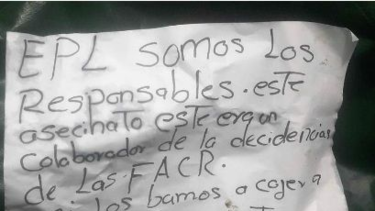 EPL somos los
Responsables. este
asecinato este era un
colaborador de la decidencias
de Las. FACR.
los bamos a cojer a